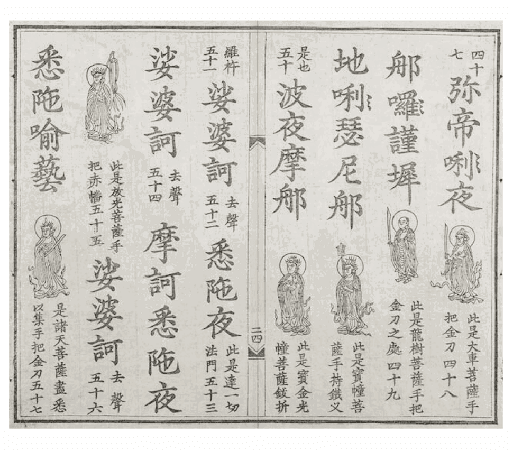 四十七 弥帝唎夜 此是大車菩薩手把金刀四十八
那囉謹墀 此是龍樹菩薩手把金刀之處四十九
地唎瑟尼那 此是寶幢菩薩手持鐵义
是也五十 波夜摩那 此是寶金光幢菩薩鈸折
二四
羅杵五十一 娑婆訶 去聲五十二 悉陁夜 此是達一切法門五十三
娑婆訶 去聲五十四 摩訶悉陁夜
此是放光菩薩手把赤幡五十五 娑婆訶 去聲五十六
悉陁喻藝 是諸天菩薩盡悉以集手把金刀五十七